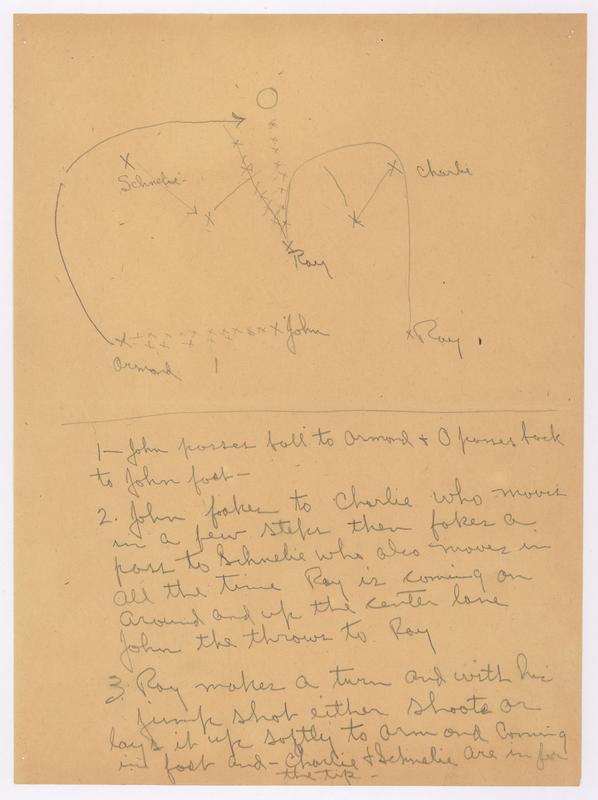 Schnelie
Charlie
Ray
John
Ray
Armond
1
1- John passes ball to Armond + O passes back
to John fast-
2. John fakes to Charlie who moves
in a few steps then fakes a
pass to Schnelie who also moves in
all the time Ray is coming on
around and up the center lane
John the throws to Ray
3. Ray makes a turn and with his
jump shot either shoots or
lays it up softly to Armond Coming
in fast and - Charlie + Schnelie are in for
the tip -